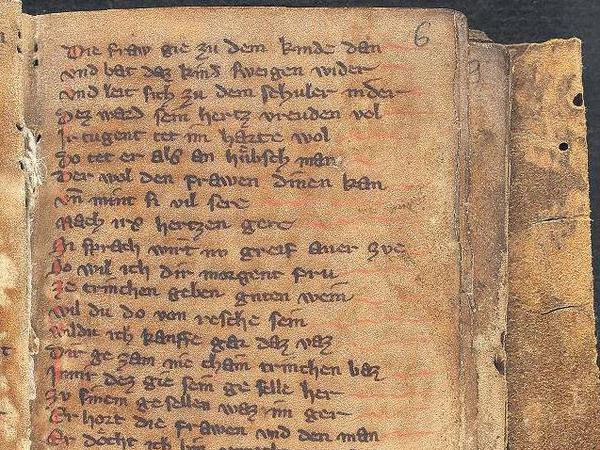 6
Die fraw gie zu dem kinde dan
vnd bat daz kind sweigen wider
vnd leit sich zu dem schuler nider
Dez ward sein hertz vreuden vol
Ir tugent tet im harte wol
Do tet er als an hübsch man
Der wol den frawen dinen kan
vn̄ mint si vil sere
Nach irs hertzen gere
Si sprach wirt nv greif aver zve
So wil ich dir morgent fru
Ze trinchen geben guten wein
wil du do von resche sein
wildu ich kauffe gar daz vaz
Dir ge zam nie chain trinchen baz
dez gie sein ge selle her
Zv sinem gesellen waz im ger
Er hort die frawen vnd den man
Er docht ich bin